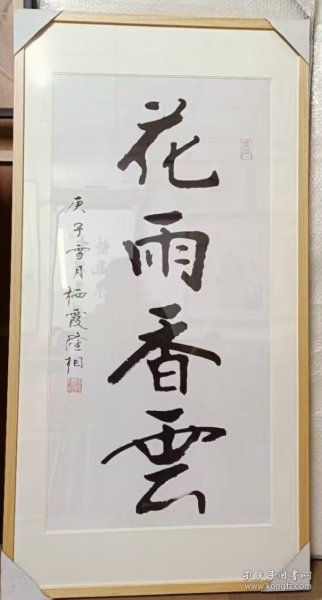 花雨香雲
庚子雪月栖霞隆相
孔夫子旧书网
www.kongfz.com